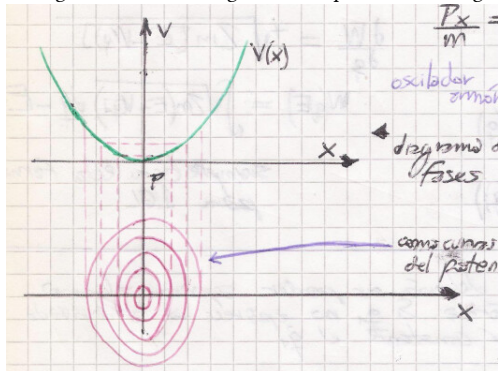 V
V(x)
Px
m
=
oscilador
armón
X
diagrama d
fases
P
como curvas
del poten
X